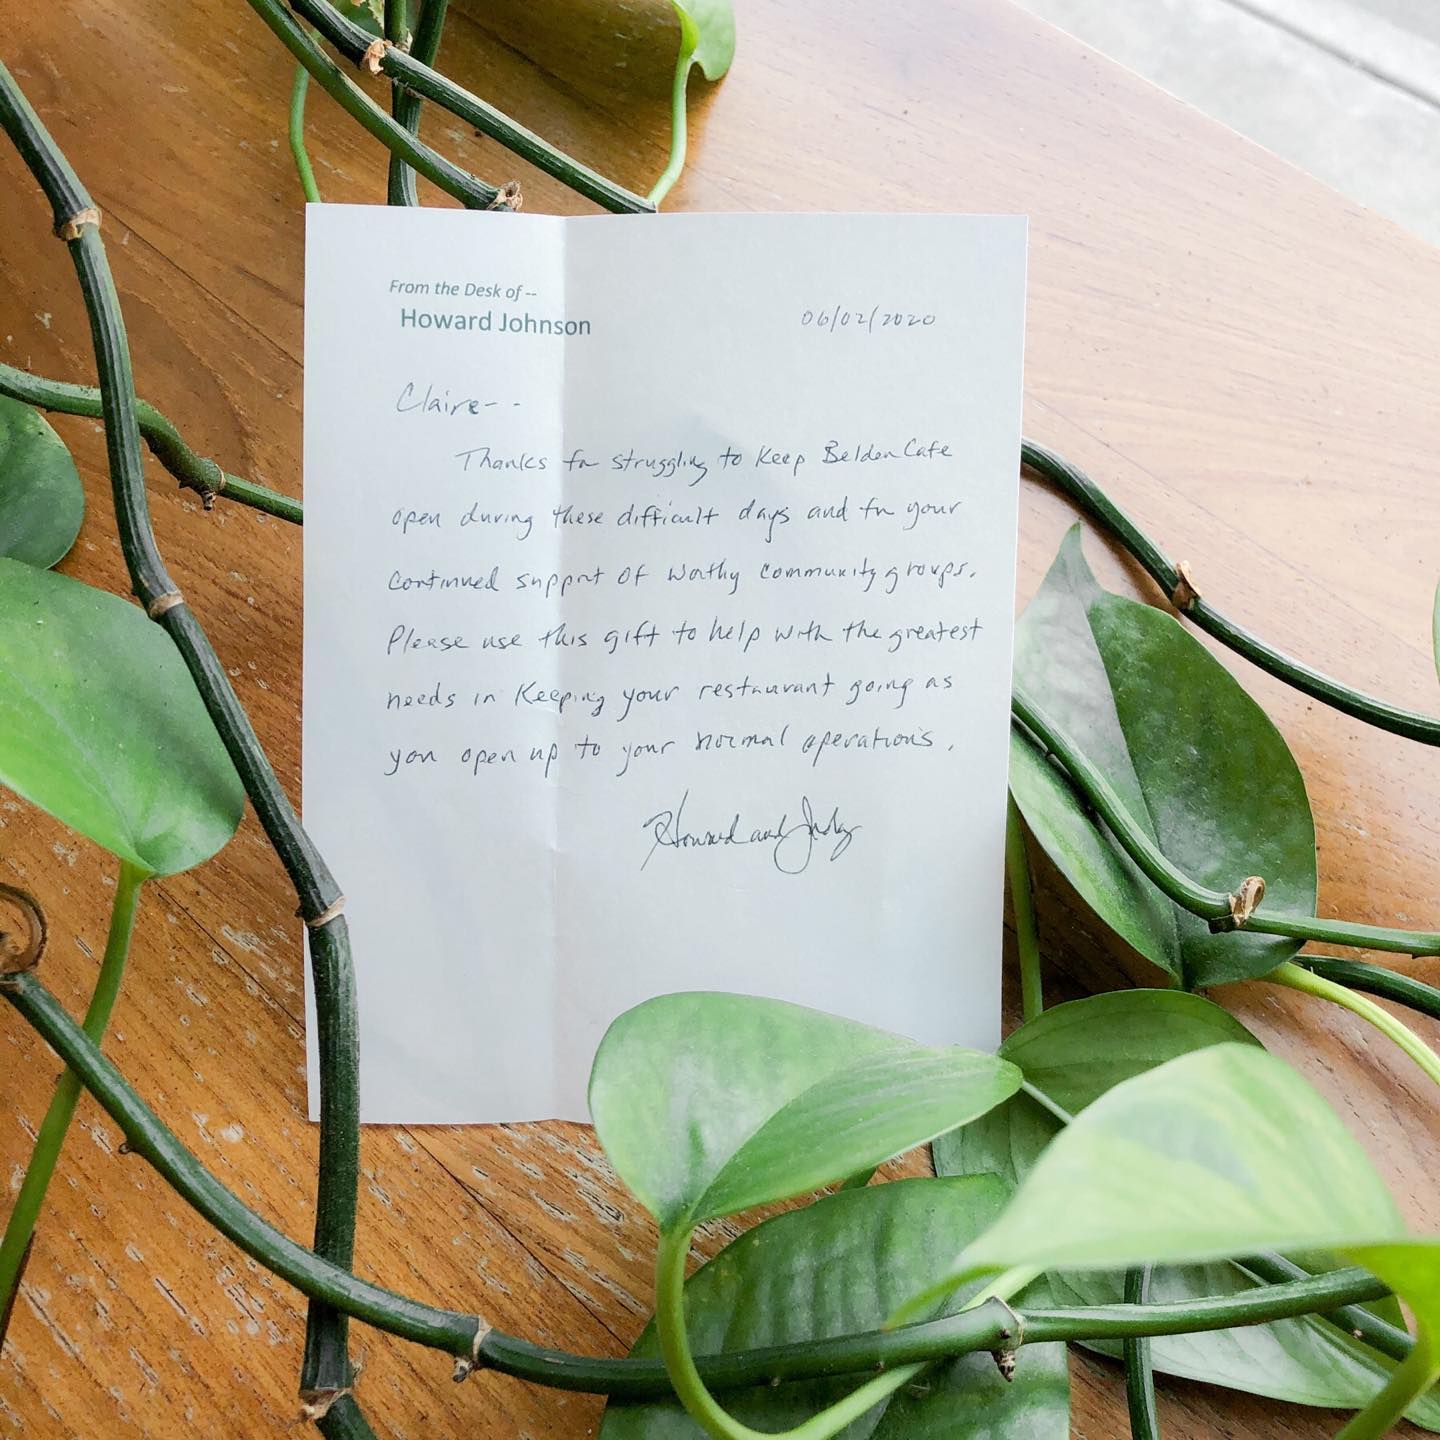 From the Desk of --
Howard Johnson
06/02/2020
Claire--
Thanks for struggling to keep Belden Cafe
open during these difficult days and for your
continued support of worthy community groups.
Please use this gift to help with the greatest
needs in keeping your restaurant going as
you open up to your normal operations.
Howard and Judy